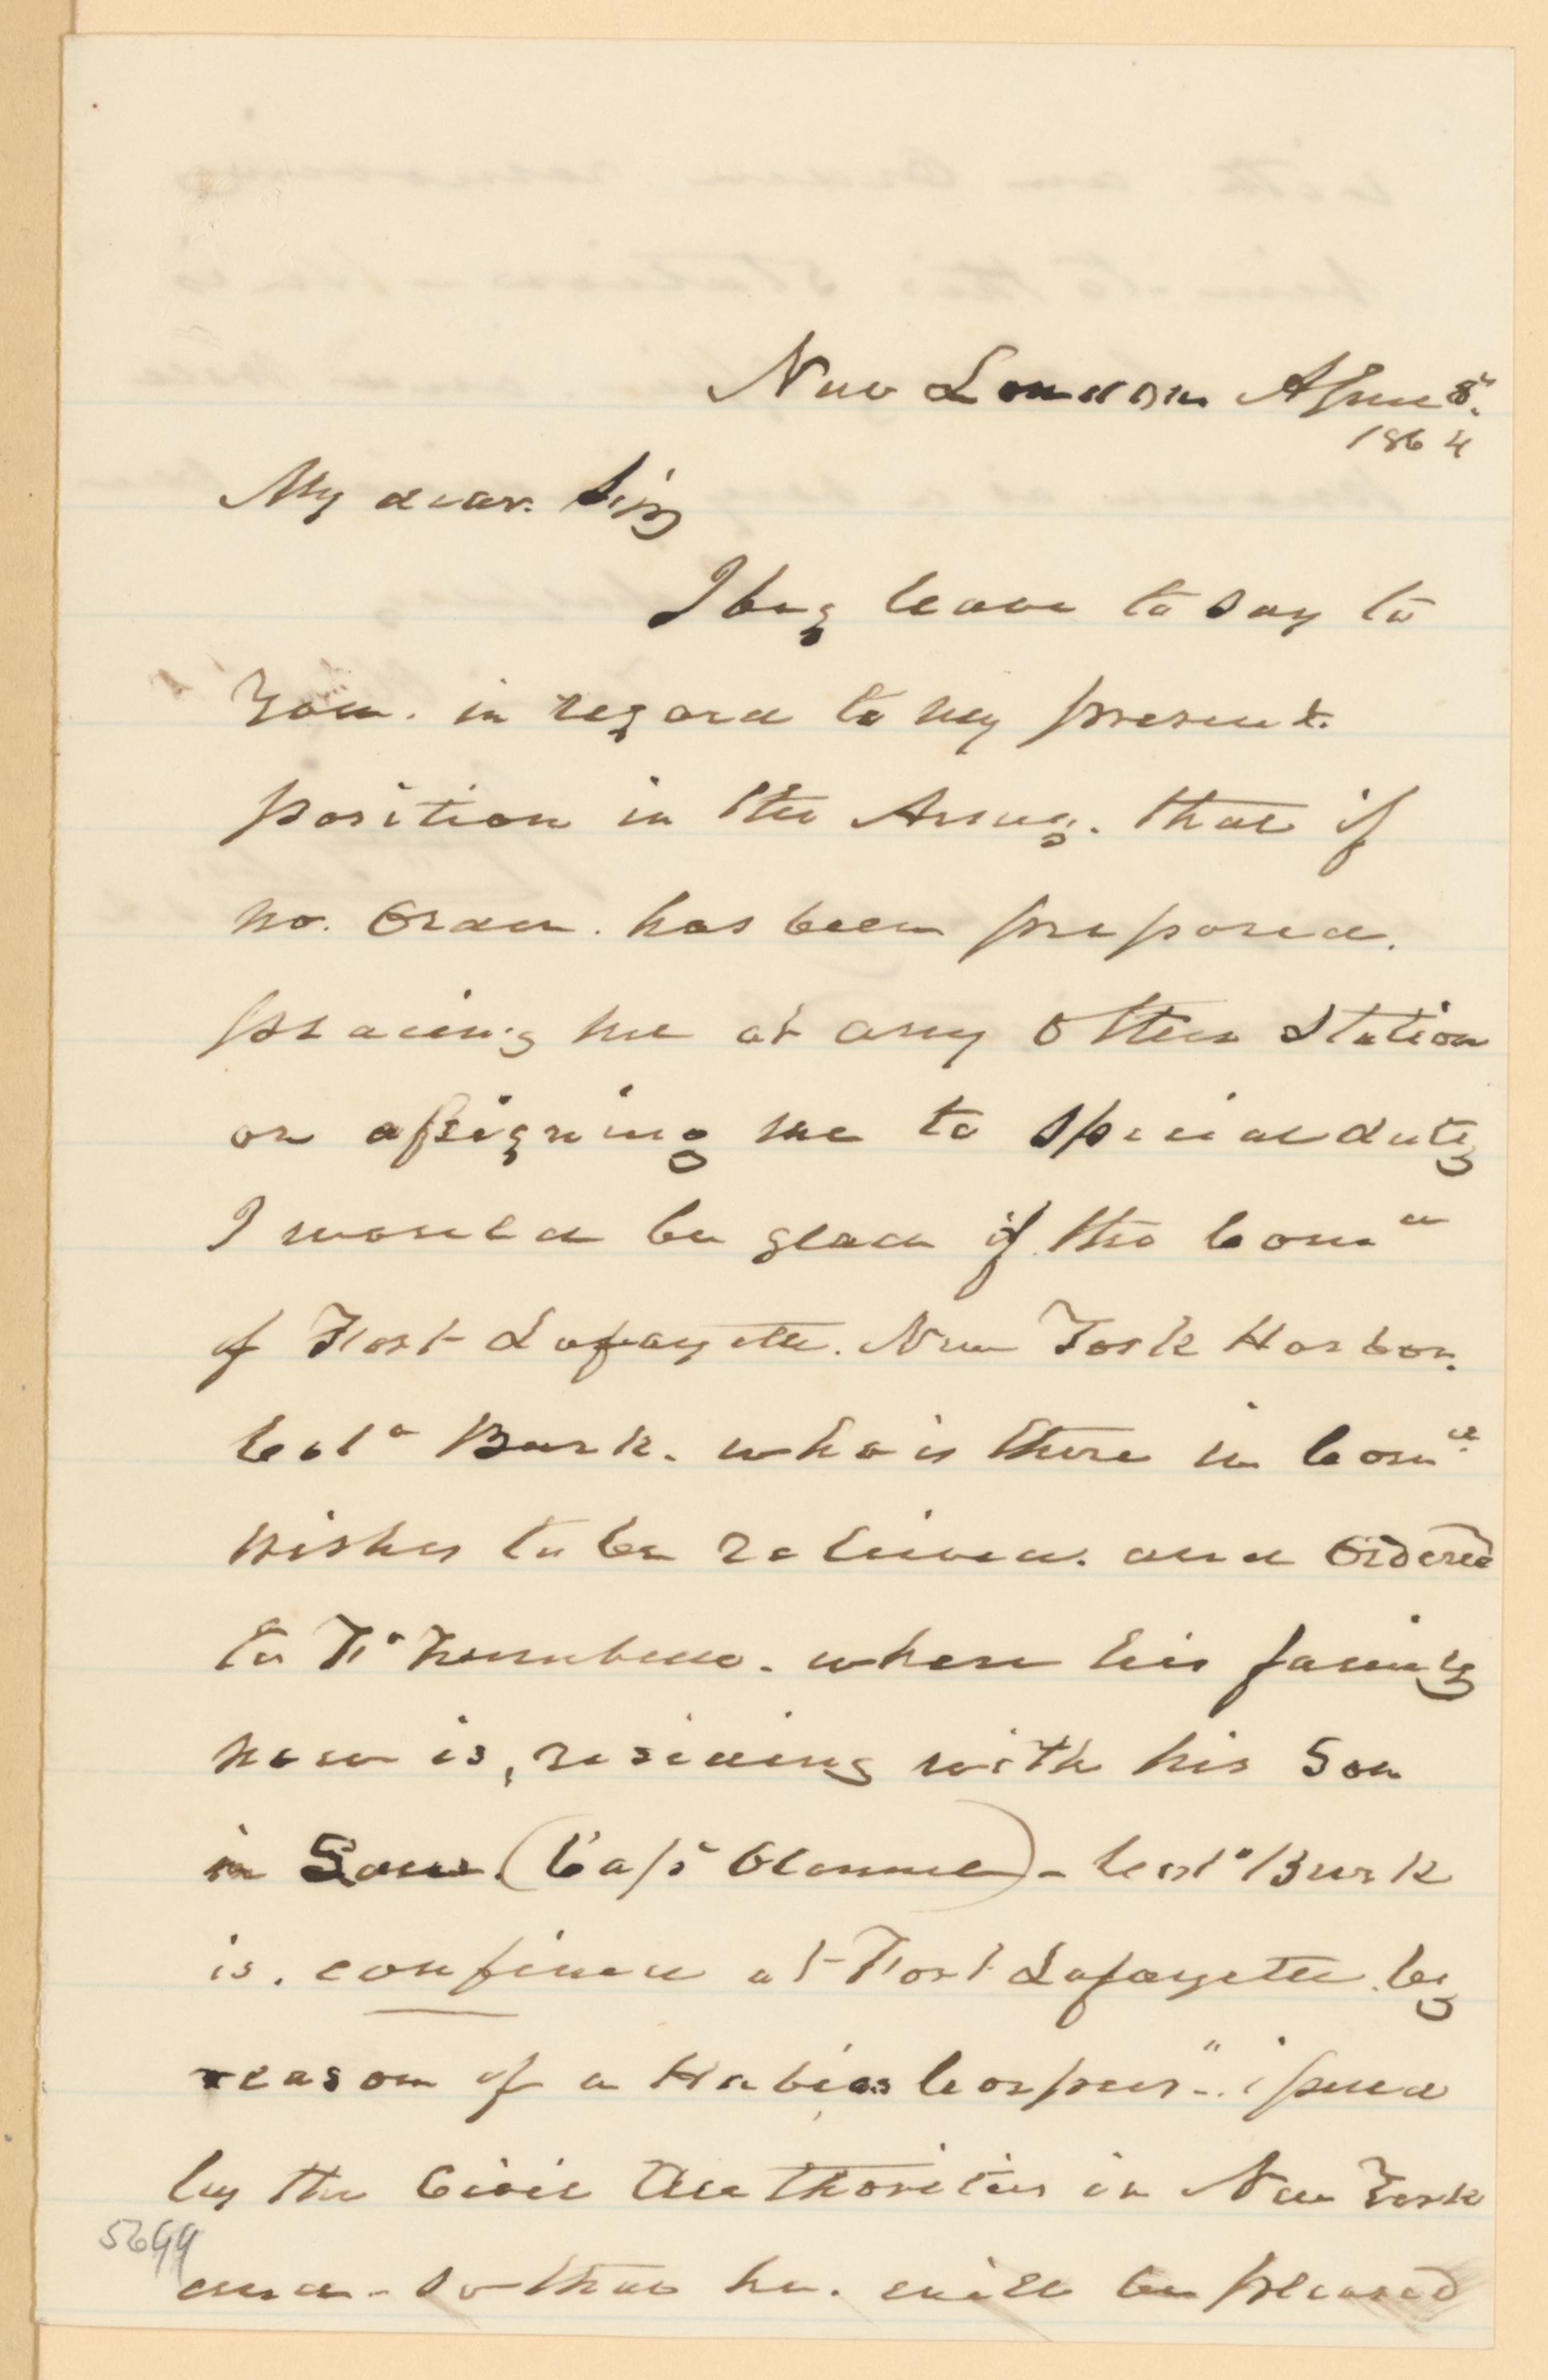 New London April 8"
1864
My dear Sir,
I beg leave to say to
you. in regard to my present
position in the Army. that if
no. Order. has been prepared.
placing me at any other Station
or assigning me to special duty
I would be glad if the Comd
of Fort Lafayette. New York Harbor.
Colo Burk. who is there in Comd.
wishes to be relieved. and Ordered
to Ft Trumbull. where his family
now is, residing with his Son
in Law. (Capt ) - Colo Burk
is. confined at Fort Lafayette. by
reason of a Habeas Corpus". issued
by the Civil Authorities in New York
and - so that he. will be pleased
5699